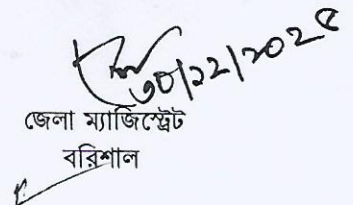 ৩০/১১/২০২৫
জেলা ম্যাজিস্ট্রেট
বরিশাল